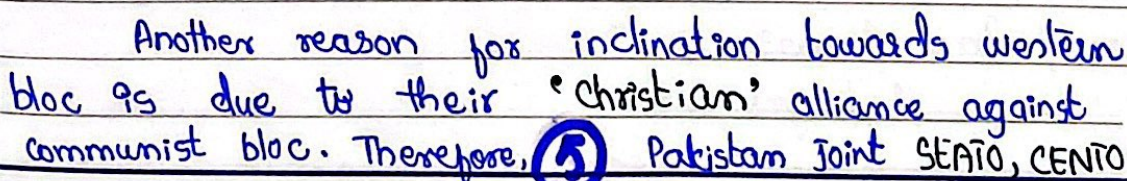 Another reason for inclination towards western
bloc is due to their 'Christian' alliance against
communist bloc. Therefore, 5 Pakistan Joint SEATO, CENTO